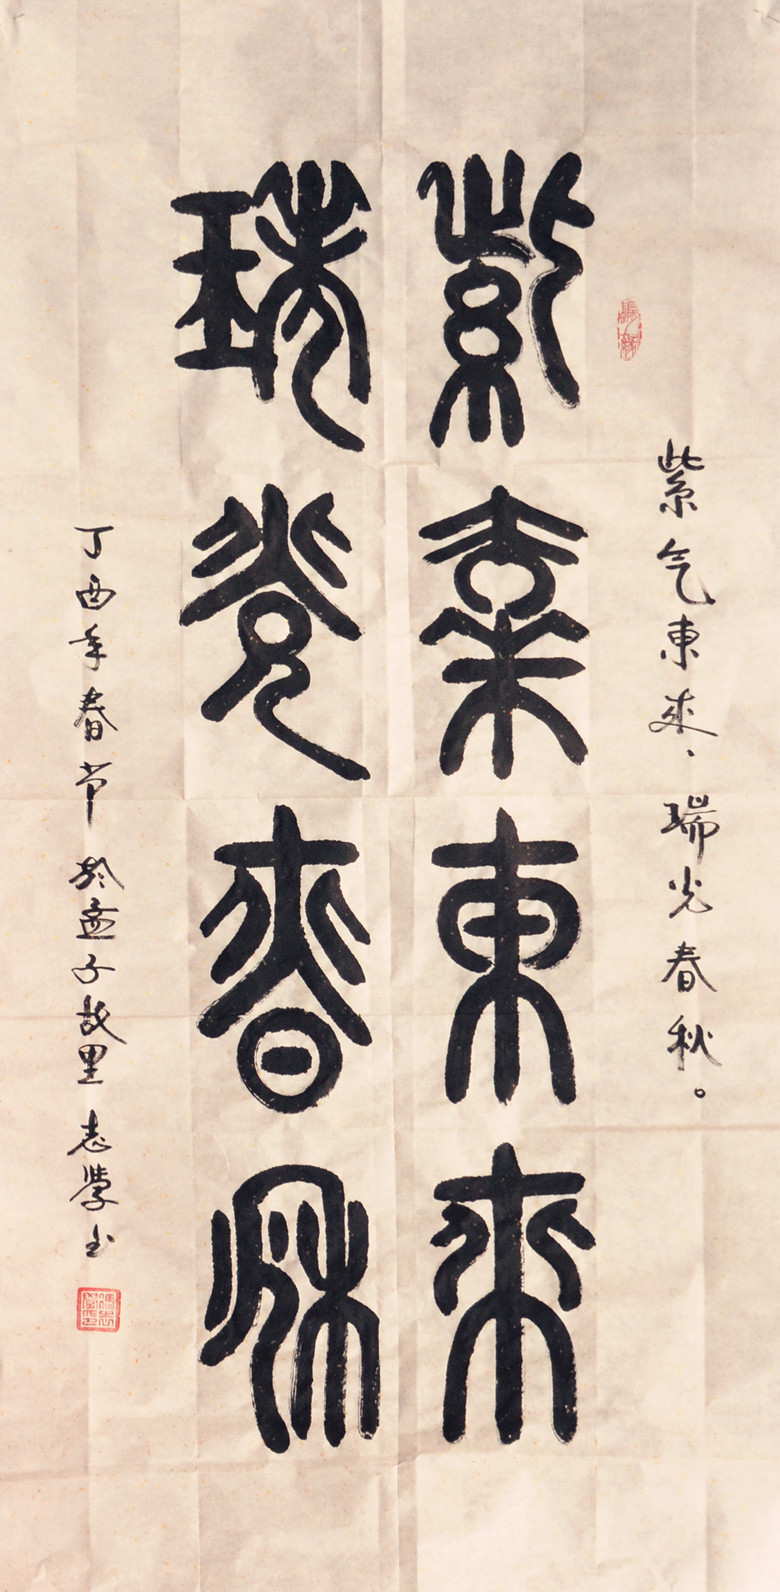 紫气東來、瑞光春秋。
紫氣東來
瑞光春秋
丁酉年春节於孟子故里志學书